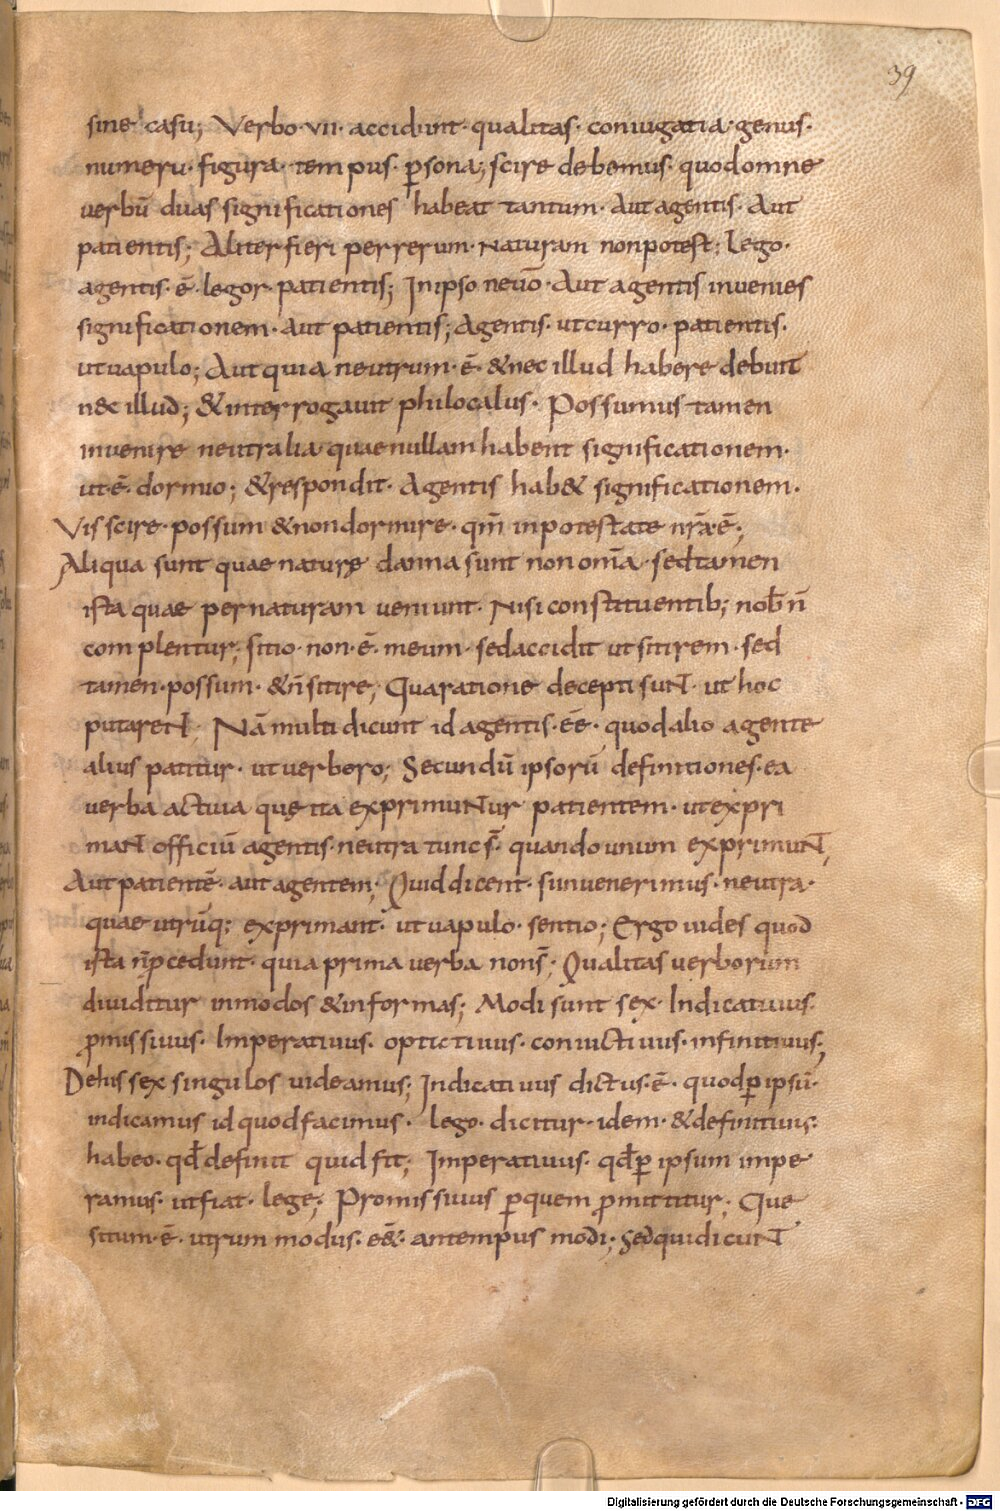 39
sine casu; Verbo·vii· accidunt· qualitas· coniugatia·genus·
numeru·figura·tempus·p̲sona; scire debemus· quodomne
verbū duas significationes habeat tantum· Aut agentis· Aut
patientis; Aliter fieri per rerum· Naturam nonpotest; Lego·
agentis·ē·legor·patientis; Inipso neuō· Aut agentis inuenies
significationem· aut patientis; Agentis·utcurro·patientis·
utuapulo; Autquia neutrum·ē·&nec illud habere debuit
nec illud; &interrogauit philocalus· Possumus tamen
inuenire neutralia·quaenullam habent significationem·
ut·ē·dormio; &respondit· Agentis hab& significationem·
Vis scire·possum &nondormire·qm̄ inpotestate nr̄a·ē·;
Aliqua sunt quae naturę damna sunt non om̄a·sedtamen
ista quae pernaturam ueniunt· Nisi constituentib; nob̄ n̄
complentur; sitio·non·ē·meum·sedaccidit ut sitirem·sed
tamen·possum·&n̄sitire; Quaratione decepti suNt·ut hoc
putareNt; Nā multi dicunt id agentis·eē·quodalio agente
alius patitur·utverbero; Secundū ipsorū definitiones·ea
verba actiuia quę ita exprimuNtur patientem·utexpri
maNt officiū agentis·neutra tunc s̄·quando unum exprimuNt,
Aut patientē·aut agentem; Quid dicent·sunvenerimus·neutra·
quae utrūq; exprimant·utuapulo·sentio; Ergo uides quod
ista n̄p̄cedunt·quia prima verba nons̄; Qualitas verborum
diuiditur inmodos &informas; Modi sunt sex· Indicatiuus·
p̄missiuus· Imperatiuus· optictiuus·coniuctiuus·infinitiuus;
Dehis sex singulos uideamus; Indicatiuus dictus·ē·quodp̲ipsū·
indicamus id quodfacimus· lego·dicitur·idem·&definitiuus·
habeo·qd̄ definit quid fit; Imperatiuus·qd̄p̲ ipsum impe
ramus·utfiat·lege; Promissiuus p̲quem p̄mittitur; Que
situm·ē·utrum modus·eē&·antempus modi; sedquidicuNt
Digitalisierung gefördert durch die Deutsche Forschungsgemeinschaft - DFG